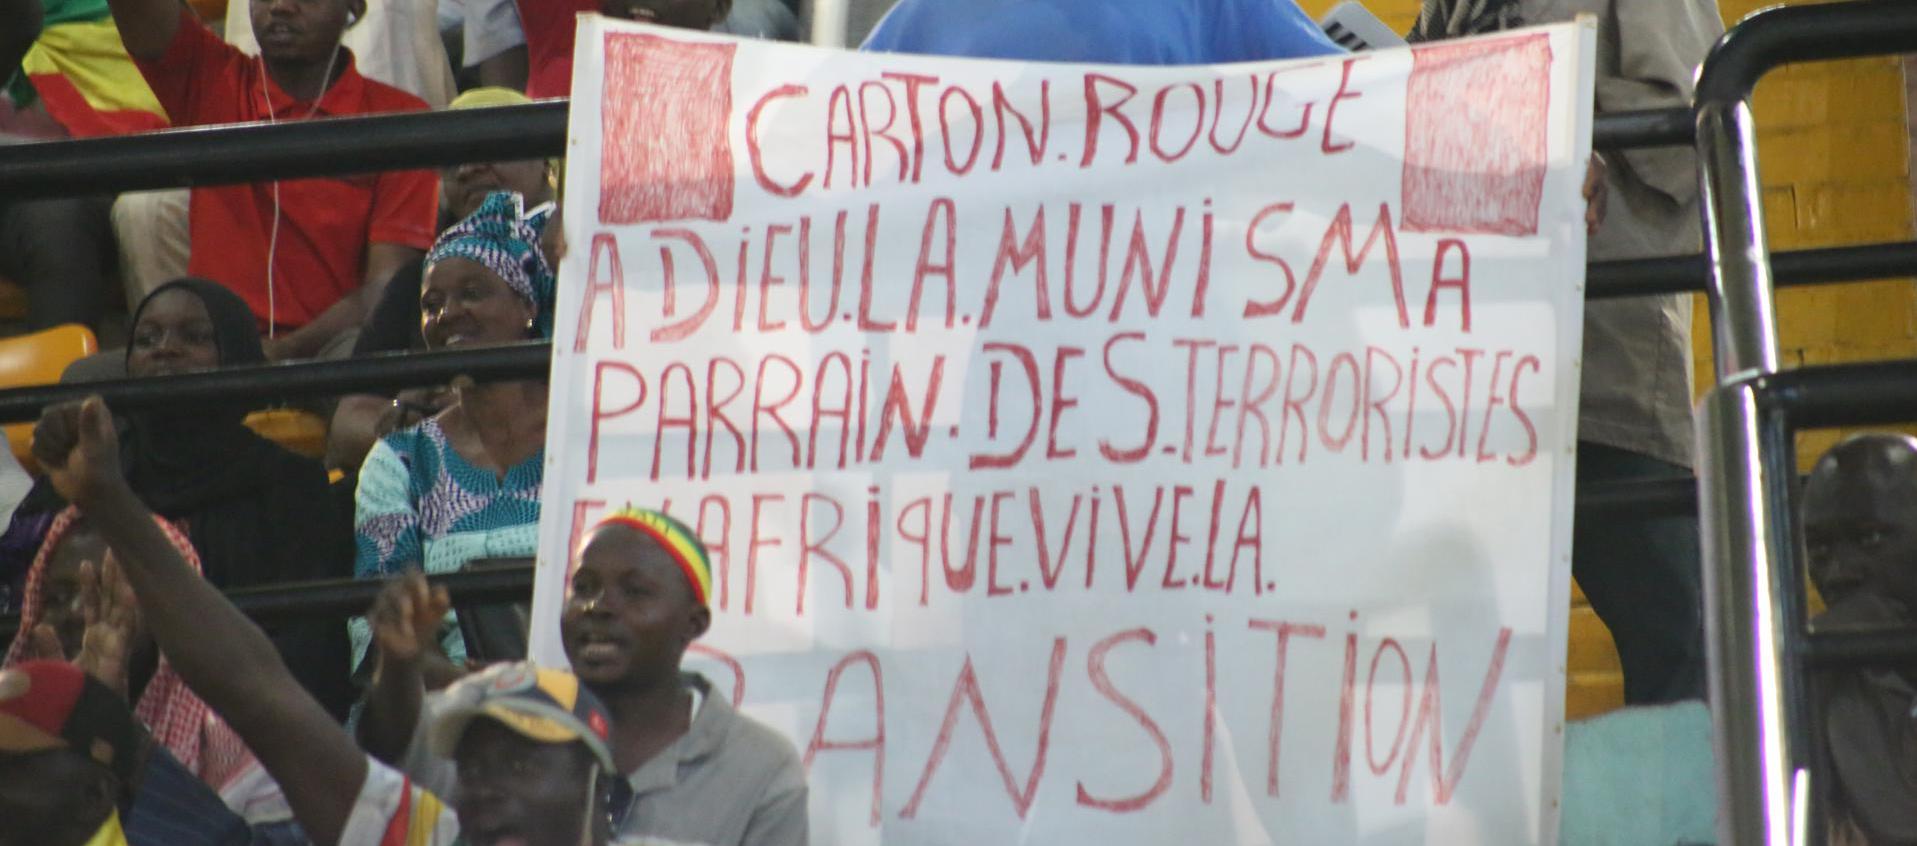 CARTON. ROUGE
ADIEU. LA. MUNISMA
PARRAIN. DES. TERRORISTES
AFRIQUE. VIVE. LA.